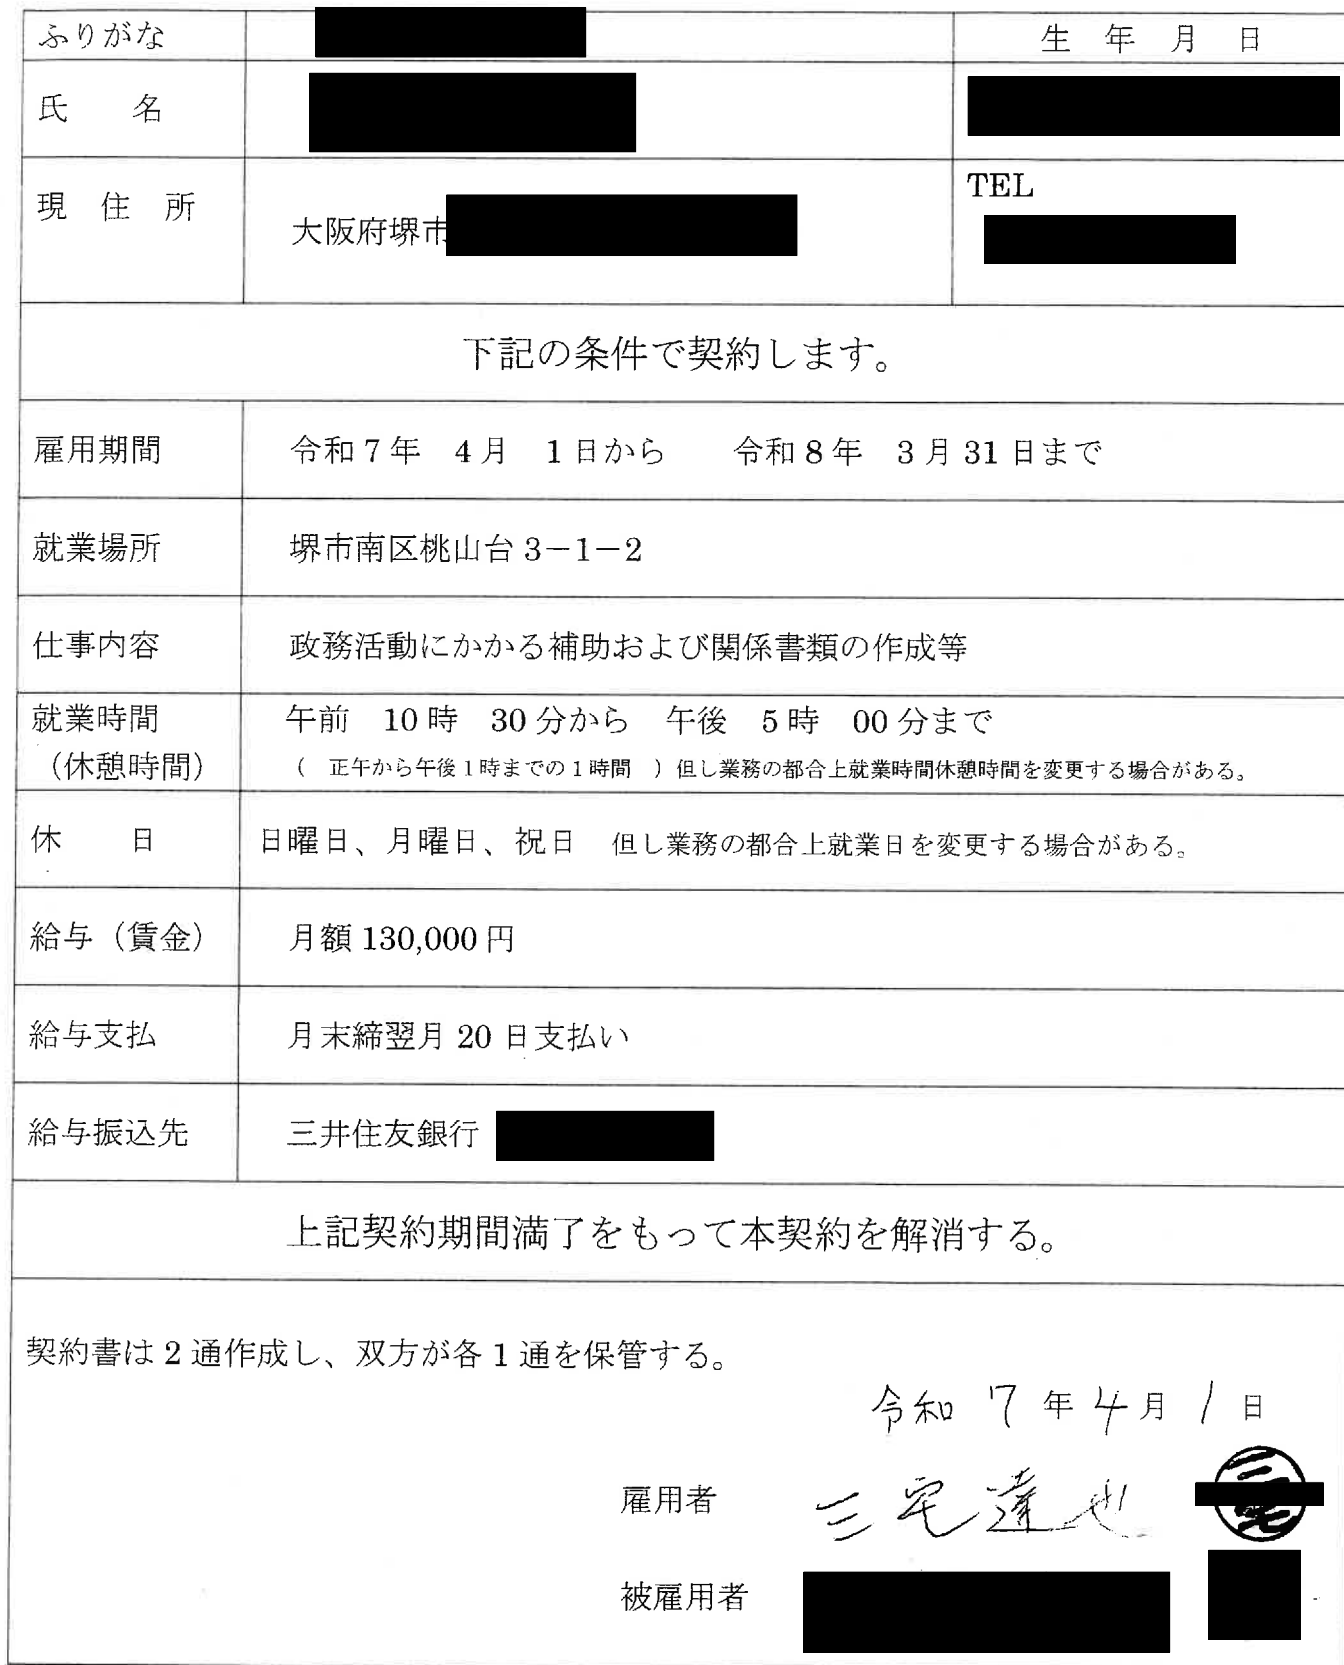 ふりがな
生 年 月 日
氏 名
現 住 所
大阪府堺市
TEL
下記の条件で契約します。
雇用期間
令和7年 4月 1日から 令和8年 3月31日まで
就業場所
堺市南区桃山台3-1-2
仕事内容
政務活動にかかる補助および関係書類の作成等
就業時間
(休憩時間)
午前 10時 30分から 午後 5時 00分まで
( 正午から午後1時までの1時間 )但し業務の都合上就業時間休憩時間を変更する場合がある。
休 日
日曜日、月曜日、祝日 但し業務の都合上就業日を変更する場合がある。
給与(賃金)
月額130,000円
給与支払
月末締翌月20日支払い
給与振込先
三井住友銀行
上記契約期間満了をもって本契約を解消する。
契約書は2通作成し、双方が各1通を保管する。
令和 7 年 4 月 1 日
雇用者 三宅達也
被雇用者